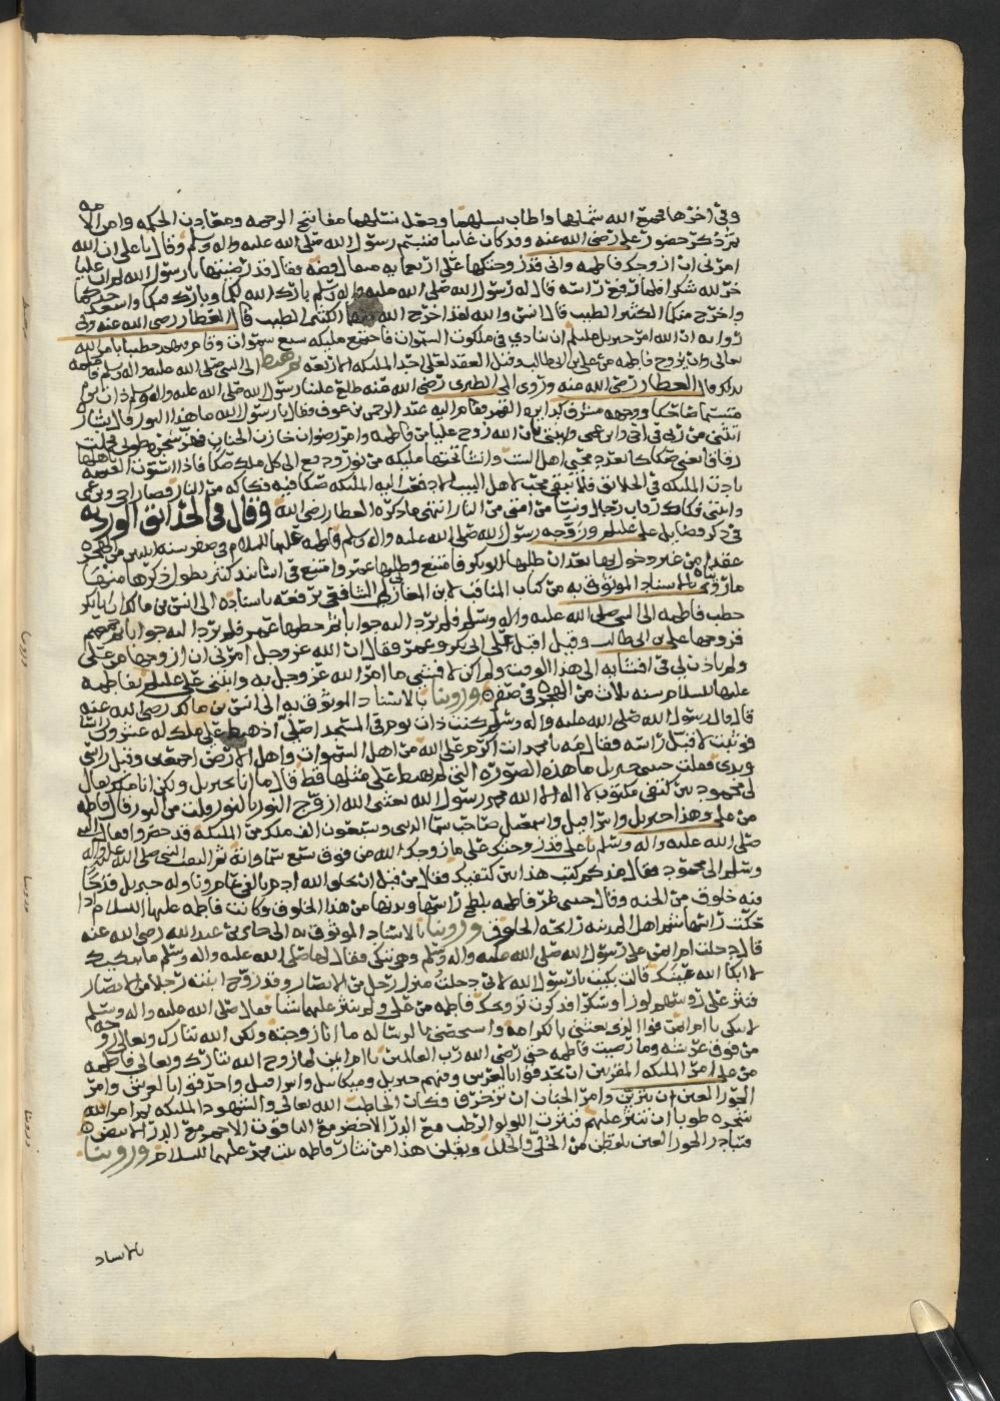 وفي اخرها فجمع الله شملهما واطاب نسلهما وجعل نسلهما مفاتيح الرحمه ومعادن الحكمه وامن الامه
ثم ذكر حضور علي رضي الله عنه وقد كان غايبا فتبسم رسول الله صلى الله عليه واله وسلم وقال يا علي ان الله
امرني ان ازوجك فاطمه واني قد زوجتكها على اربعمايه مثقال فضه فقال قد رضيتها يا رسول الله ثم ان عليا
خر لله شكرا فلما رفع راسه قال له رسول الله صلى الله عليه واله وسلم بارك الله لكما وبارك فيكما واسعد جدكما
واخرج منكما الكثير الطيب قال انس والله لقد اخرج الله منهما الكثير الطيب قال العطار رضي الله عنه وفي
روايه ان الله امر جبريل عليلم ان ينادي في ملكوت السموات فاجتمع مليكه سبع سموات وقام فيهم خطيبا بامر الله
تعالى وان يزوج فاطمه من علي بن ابي طالب وقبل العقد لعلي احد المليكه الاربعه ثم هبط الى النبي صلى الله عليه واله وسلم فاعلمه
بذلك قال العطار رضي الله عنه وروى الطبري رضي الله عنه طلع علينا رسول الله صلى الله عليه واله وسلم ذات يوم
متبسما ضاحكا ووجهه مشرق كدايره القمر فقام اليه عبد الرحمن بن عوف فقال يا رسول الله ما هذا النور قال بشاره
اتتني من ربي في اخي وابن عمي وابنتي بان الله زوج عليا من فاطمه وامر رضوان خازن الجنان فهز شجره طوبى فحملت
رقاقا يعني صكاكا بعدد محبي اهل البيت وانشا تحتها مليكه من نور ودفع الى كل ملك صكا فاذا استوت القيمه باهلها
نادت المليكه في الخلايق فلا يبقى محب لاهل البيت الا دفعت اليه المليكه صكا فيه فكاكه من النار فصار اخي وبن عمي
وابنتي فكاك رقاب رجال ونسا من امتي من النار انتهى ما ذكره العطار رضي الله وقال في الحدائق الورديه
في ذكر فضايل علي عليلم وزوجه رسول الله صلى الله عليه واله وسلم فاطمه عليها السلام في صفر سنه اثنين من الهجره
عقدا من غير دخول بها بعد ان طلبها ابو بكر فامتنع وطلبها عمر وامتنع في اسانيد كثر يطول ذكرها منها
ما رويناه بالاسناد الموثوق به من كتاب المناقب لابن المغازلي الشافعي يرفعه باسناده الى انس بن مالك ان ابا بكر
خطب فاطمه الى النبي صلى الله عليه واله وسلم فلم يرد اليه جوابا ثم خطبها عمر فلم يرد اليه جوابا ثم جمعهم
فزوجها علي بن ابي طالب وقيل اقبل على ابي بكر وعمر فقال ان الله عز وجل امرني ان ازوجها من علي
ولم ياذن لي في افشايه الى هذا الوقت ولم اكن لافشي ما امر الله عز وجل به وابتنى علي عليلم بفاطمه
عليها السلام سنه ثلاث من الهجره في صفر وروينا بالاسناد الموثوق به الى انس بن مالك رضي الله عنه
قال قال رسول الله صلى الله عليه واله وسلم كنت ذات يوم في المسجد اصلي اذ هبط علي ملك له عشرون راسا
فوثبت لاقبل راسه فقال مه يا محمد انت اكرم على الله من اهل السموات واهل الارض اجمعين وقبل راسي
ويدي فقلت حبيبي جبريل ما هذه الصوره التي لم تهبط علي مثلها قط قال ما انا بجبريل ولكن انا ملك يقال
لي محمود بين كتفي مكتوب لا اله الا الله محمد رسول الله بعثني الله ازوج النور بالنور قلت من النور قال فاطمه
من علي وهذا جبريل واسرافيل واسمعيل صاحب سما الدنيا وسبعون الف ملك من المليكه قد حضروا فقال النبي
صلى الله عليه واله وسلم يا علي قد زوجتك على ما زوجك الله من فوق سبع سمواته ثم التفت النبي صلى الله عليه واله
وسلم الى محمود فقال منذ كم كتب هذا بين كتفيك فقال من قبل ان يخلق الله ادم بالفي عام وناوله جبريل قدحا
فيه خلوق من الجنه وقال حبيبي مر فاطمه تلطخ راسها وبدنها من هذا الخلوق وكانت فاطمه عليها السلام اذا
حكت راسها شم اهل المدينه رايحه الخلوق وروينا بالاسناد الموثوق به الى جابر بن عبد الله رضي الله عنه
قال دخلت ام ايمن على رسول الله صلى الله عليه واله وسلم وهي تبكي فقال لها صلى الله عليه واله وسلم ما يبكيك
لا ابكا الله عينيك قالت بكيت يا رسول الله لاني دخلت منزل رجل من الانصار وقد زوج ابنته رجلا من الانصار
فنثر على روسهم لوزا وسكرا فذكرت تزويجك فاطمه من علي ولم ينثر عليهما شيا فقال صلى الله عليه واله وسلم
لا تبكي يا ام ايمن فوالذي بعثني بالكرامه واستخصني بالرساله ما انا زوجته ولكن الله تبارك وتعالى زوجه
من فوق عرشه وما رضيت فاطمه حتى رضي الله رب العالمين يا ام ايمن لما زوج الله تبارك وتعالى فاطمه
من علي امر المليكه المقربين ان يحدقوا بالعرش وفيهم جبريل وميكاييل واسرافيل واحدقوا بالعرش وامر
الحور العين ان يتزين وامر الجنان ان تزخرف فكان الخاطب الله تعالى والشهود المليكه ثم امر الله
شجره طوبا ان تنثر عليهم فنثرت اللولو الرطب مع الدر الاخضر مع الياقوت الاحمر مع الدر الابيض
فتبادر الحور العين يلتقطن من الحلي والحلل ويقلن هذا من نثار فاطمه بنت محمد عليهما السلام وروينا
بالاسناد